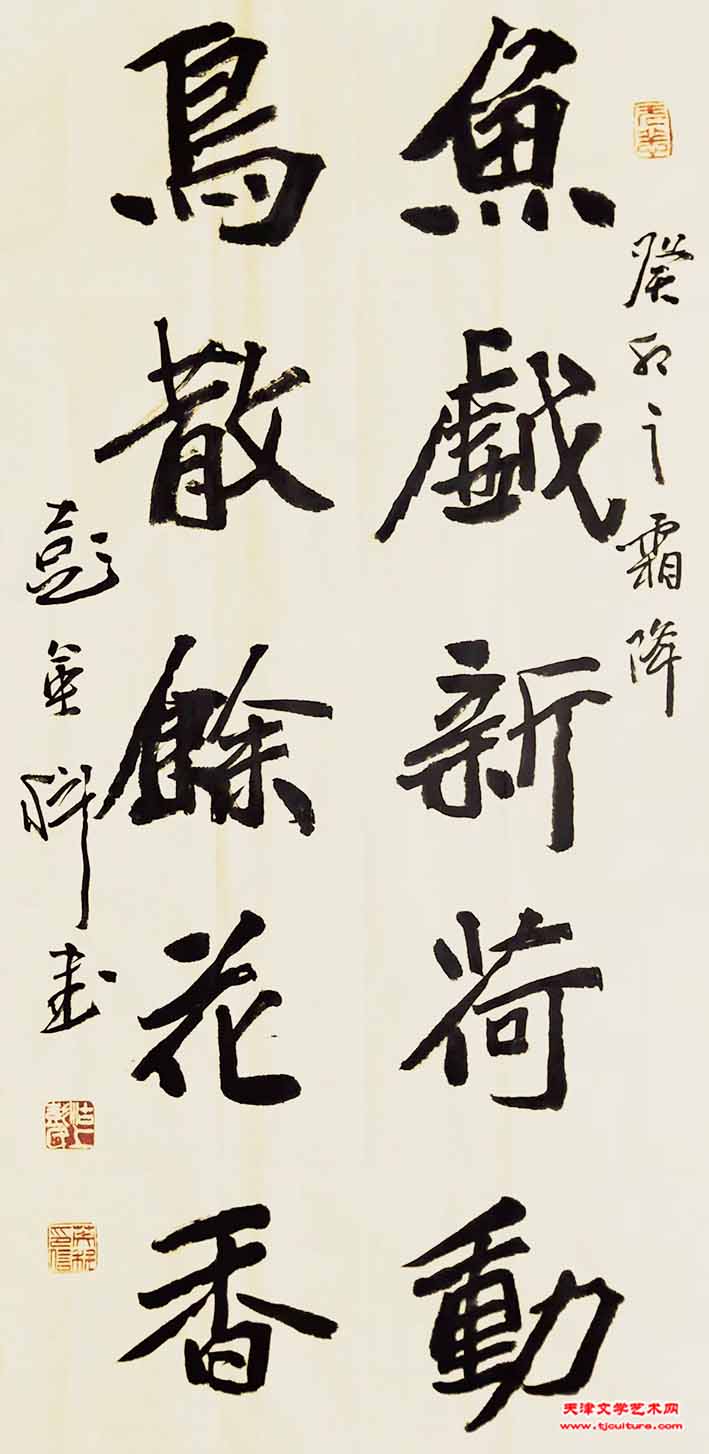 癸卯之霜降
魚戲新荷動
鳥散餘花香
彭英科書
天津文学艺术网
www.tjculture.com